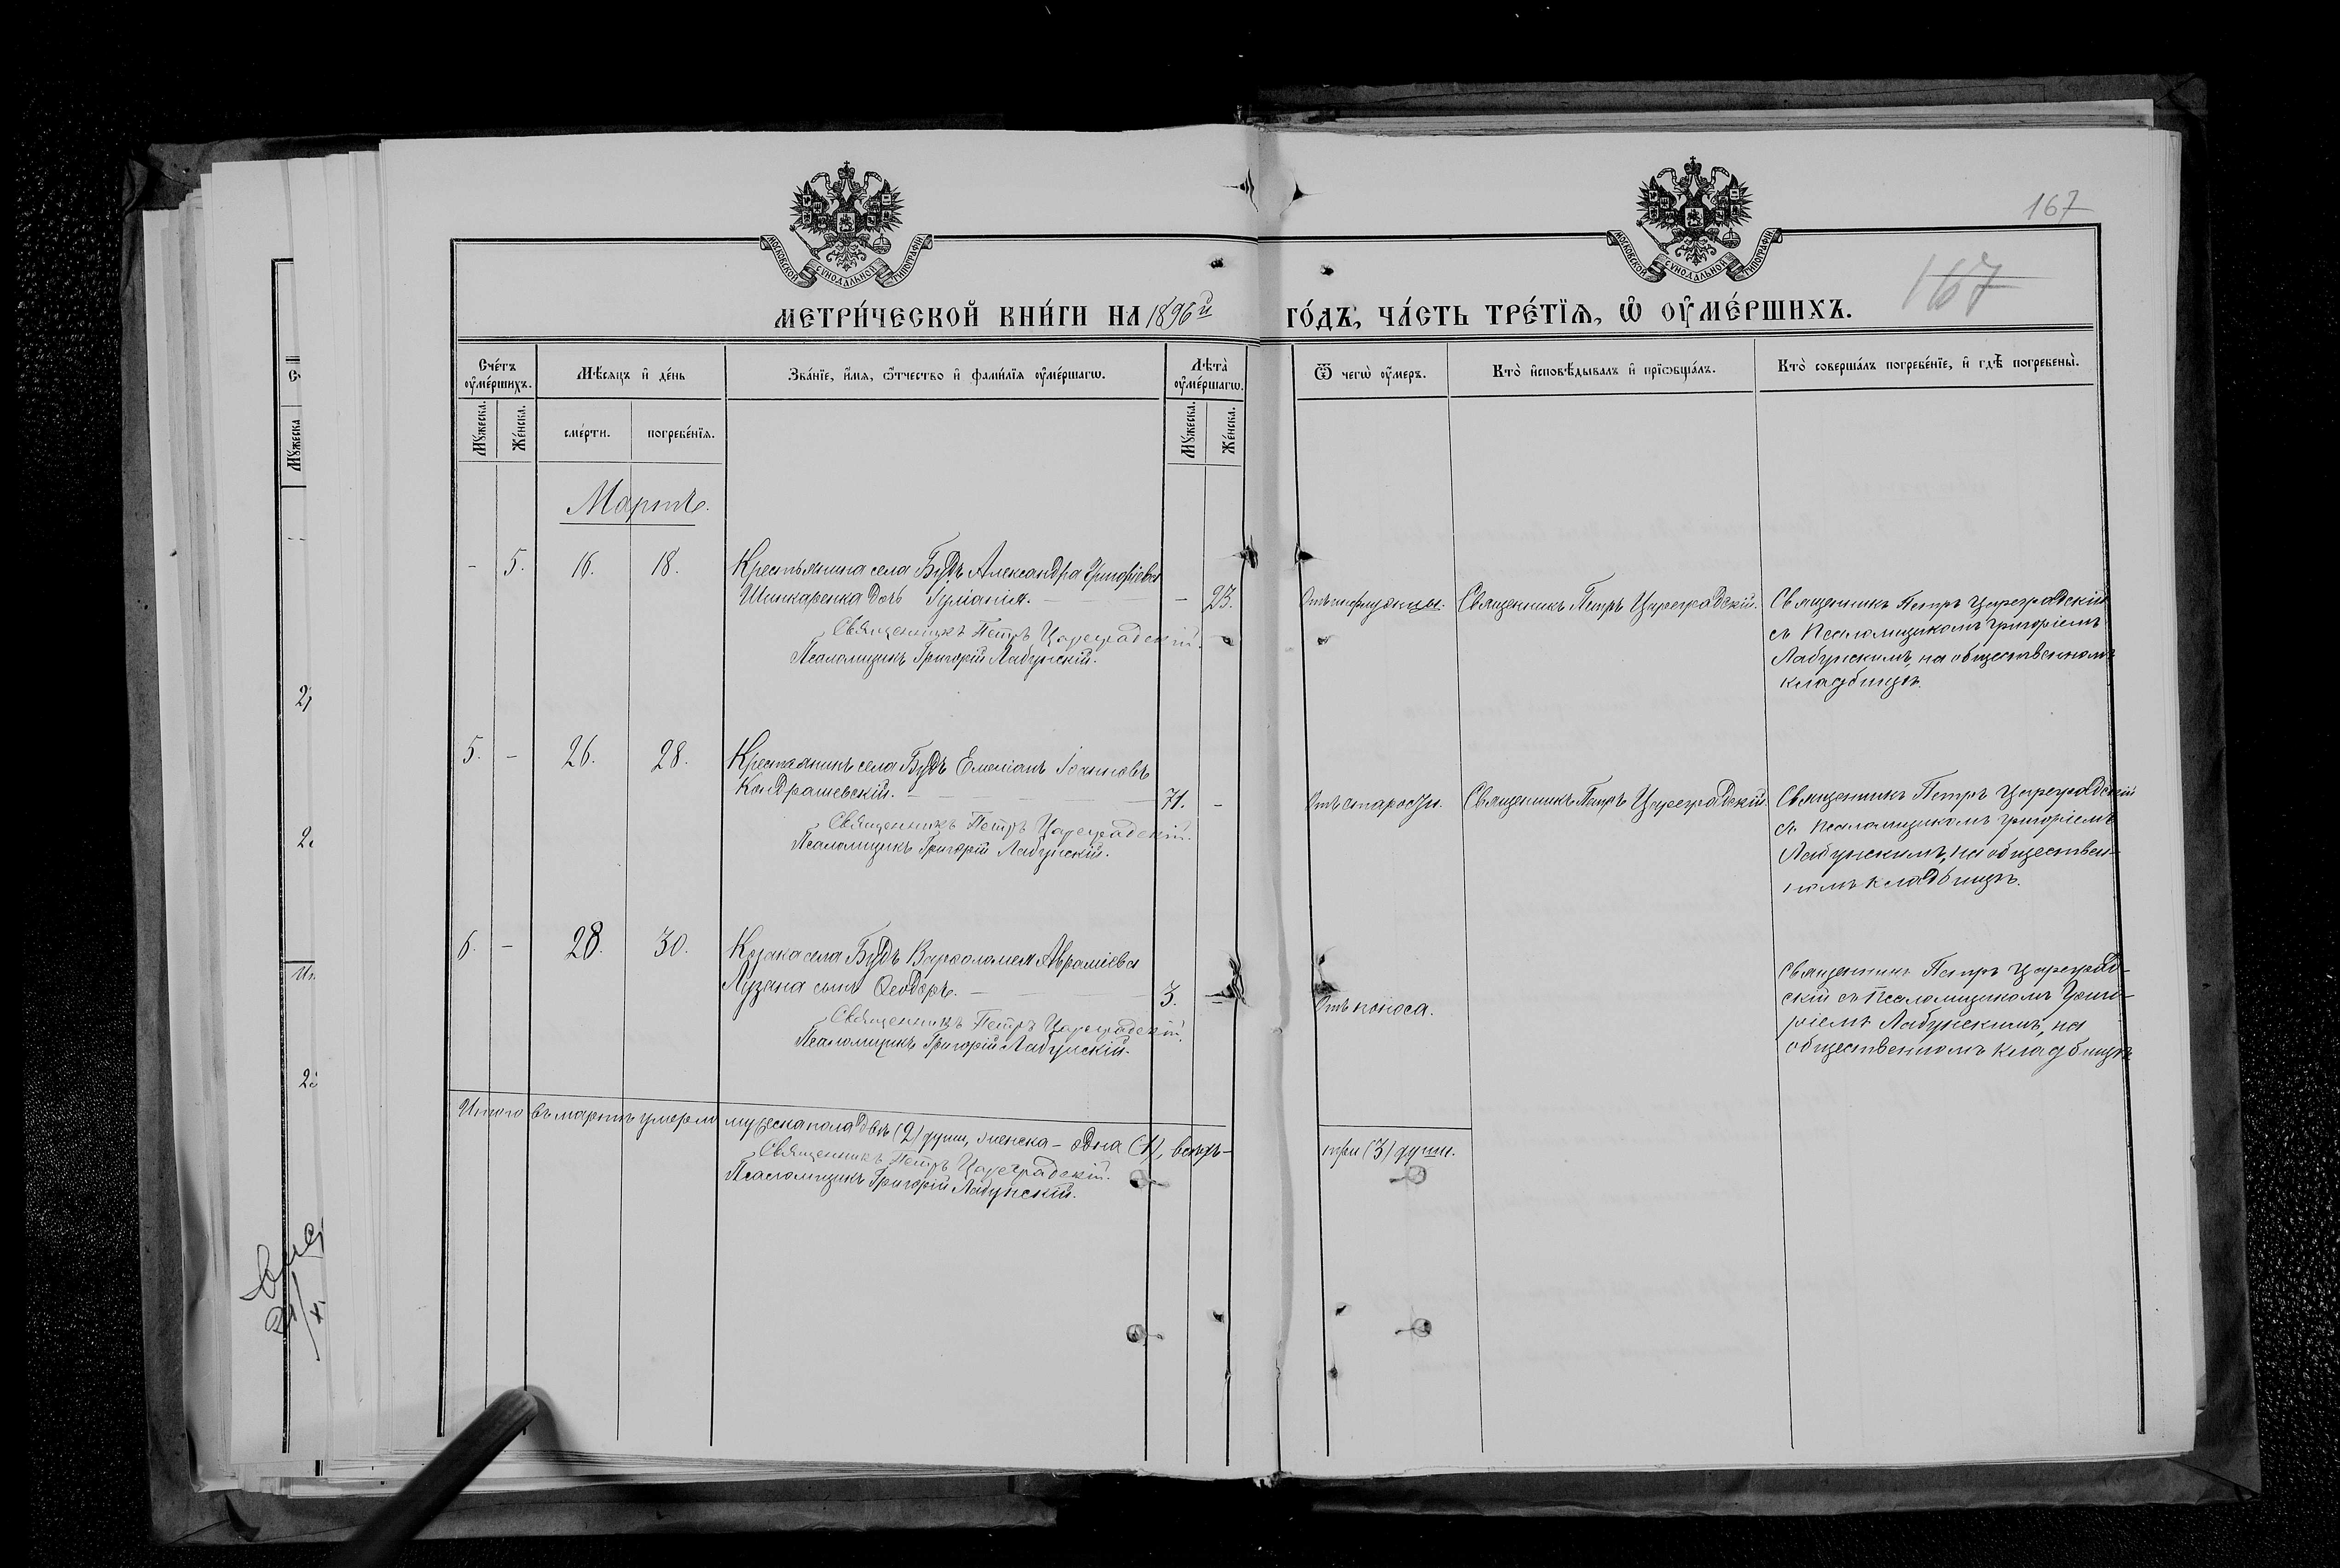 167
167
МОСКОВСКОЙ СѴНОДАЛЬНОЙ ТИПОГРАФІИ
МОСКОВСКОЙ СѴНОДАЛЬНОЙ ТИПОГРАФІИ
МЕТРИ́ЧЕСКОЙ КНИ́ГИ НА 1896й ГО́ДЪ, ЧА́СТЬ ТРЕ́ТІѦ, Ѽ ОУ҆МЕ́РШИХЪ.
Сче́тъ оу҆ме́ршихъ.
Мѣ́сяцъ и҆ де́нь
Зва́нїе, и҆́мѧ, ѻ҆́тчество и҆ фами́лїѧ оу҆ме́ршагѡ.
Лѣ̀та оу҆ме́ршагѡ.
Ѿ чегѡ̀ оу҆́меръ.
Кто̀ и҆сповѣ́дывалъ и҆ прїѡбща́лъ.
Кто̀ соверша́лъ погребе́нїе, и҆ гдѣ̀ погребены̀.
Мꙋ́жеска.
Же́нска.
сме́рти.
погребе́нїѧ.
Мꙋ́жеска.
Же́нска.
Мартъ.
- 5. 16. 18. Крестьянина села Будъ Александра Григоріева
Шинкаренка дочь Іуліанія. - 23.
Священникъ Петръ Цареградскій.
Псаломщикъ Григорій Лабунскій.
Священникъ Петръ Цареградскій.
Священникъ Петръ Цареградскій
съ Псаломщикомъ Григоріемъ
Лабунскимъ, на общественномъ
кладбищѣ.
5. - 26. 28. Крестьянинъ села Будъ Емеліанъ Іоанновъ
Кондрашевскій. - 71. -
Священникъ Петръ Цареградскій.
Псаломщикъ Григорій Лабунскій.
Отъ старости.
Священникъ Петръ Цареградскій.
Священникъ Петръ Цареградскій
съ Псаломщикомъ Григоріемъ
Лабунскимъ, на обществен-
номъ кладбищѣ.
6. - 28. 30. Козака села Будъ Варѳоломея Авраміева
Лузана сынъ Ѳеодоръ. - 3. -
Священникъ Петръ Цареградскій.
Псаломщикъ Григорій Лабунскій.
Отъ поноса.
Священникъ Петръ Цареград-
скій съ Псаломщикомъ Григо-
ріемъ Лабунскимъ, на
общественномъ кладбищѣ
Итого въ мартѣ умерло мужеска пола двѣ (2) души, женска - одна (1), всѣхъ - три (3) души.
Священникъ Петръ Цареградскій.
Псаломщикъ Григорій Лабунскій.